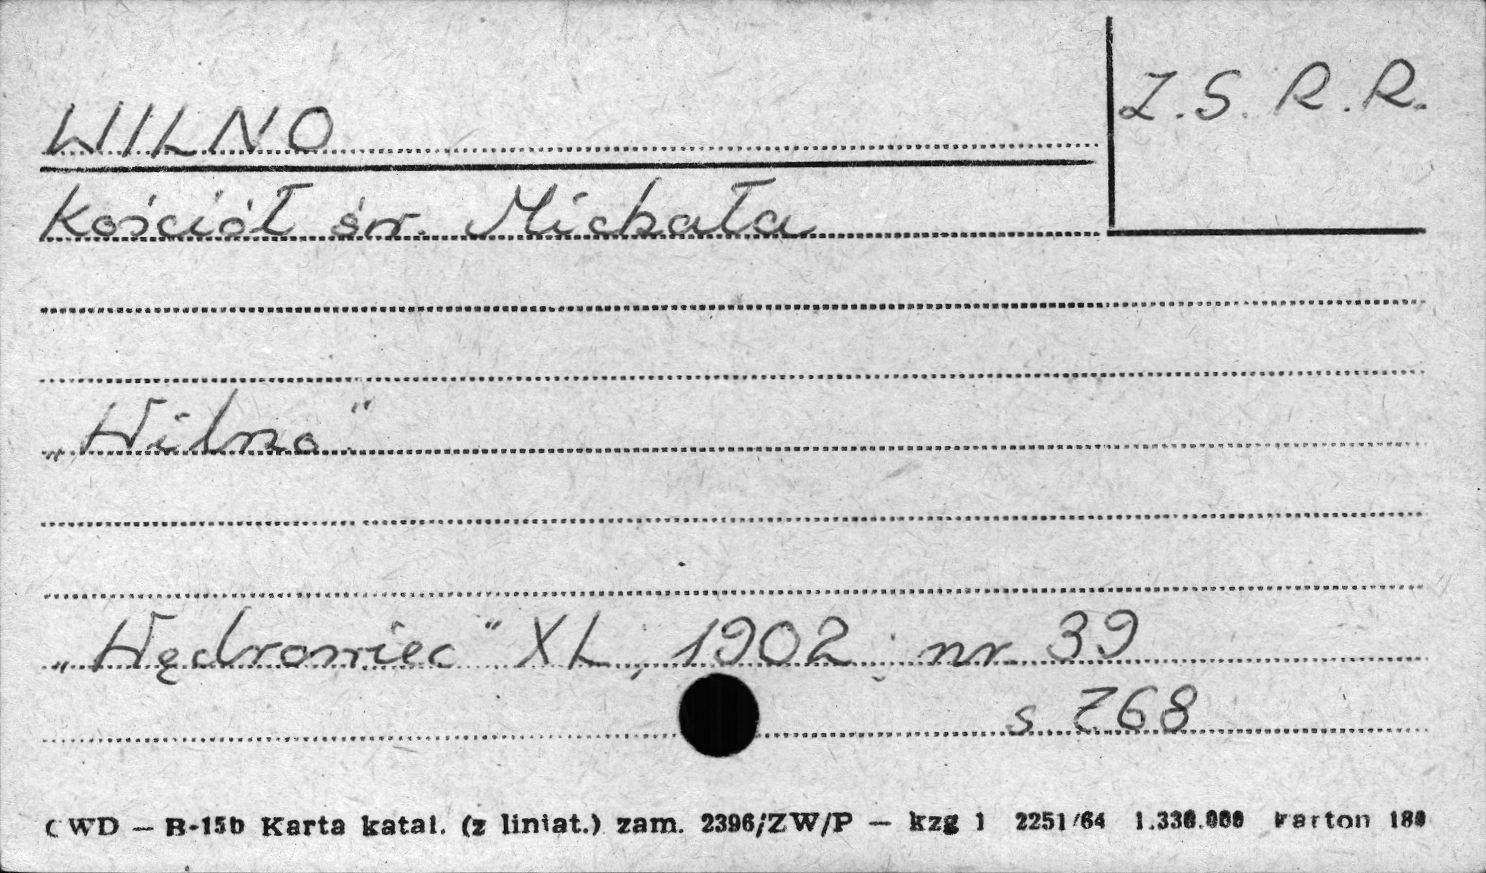 WILNO
Z.S.R.R.
Kościół św. Michała
„Wilno"
„Wędrowiec" XL, 1902, nr 39
s 768
CWD — B-15b Karta katal. (z liniat.) zam. 2396/ZW/P — kzg 1 2251/64 1.330.000 karton